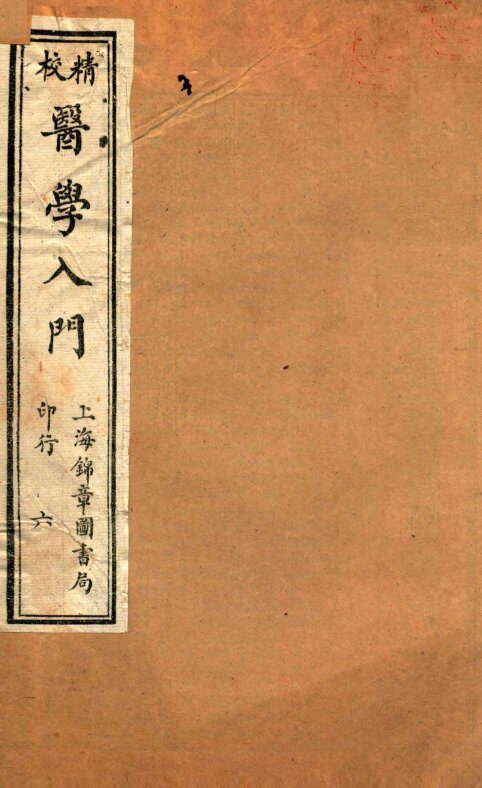 精校
醫學入門
上海錦章圖書局
印行 六